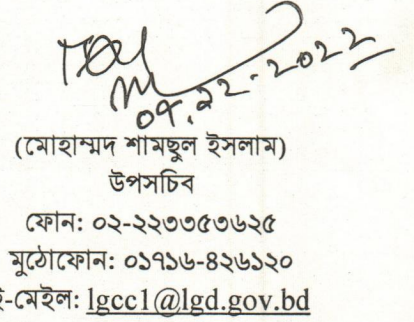 ০৭.১২-২০২২
(মোহাম্মদ শামছুল ইসলাম)
উপসচিব
ফোন: ০২-২২৩৩৫৩৬২৫
মুঠোফোন: ০১৭১৬-৪২৬১২০
ই-মেইল: lgcc1@lgd.gov.bd